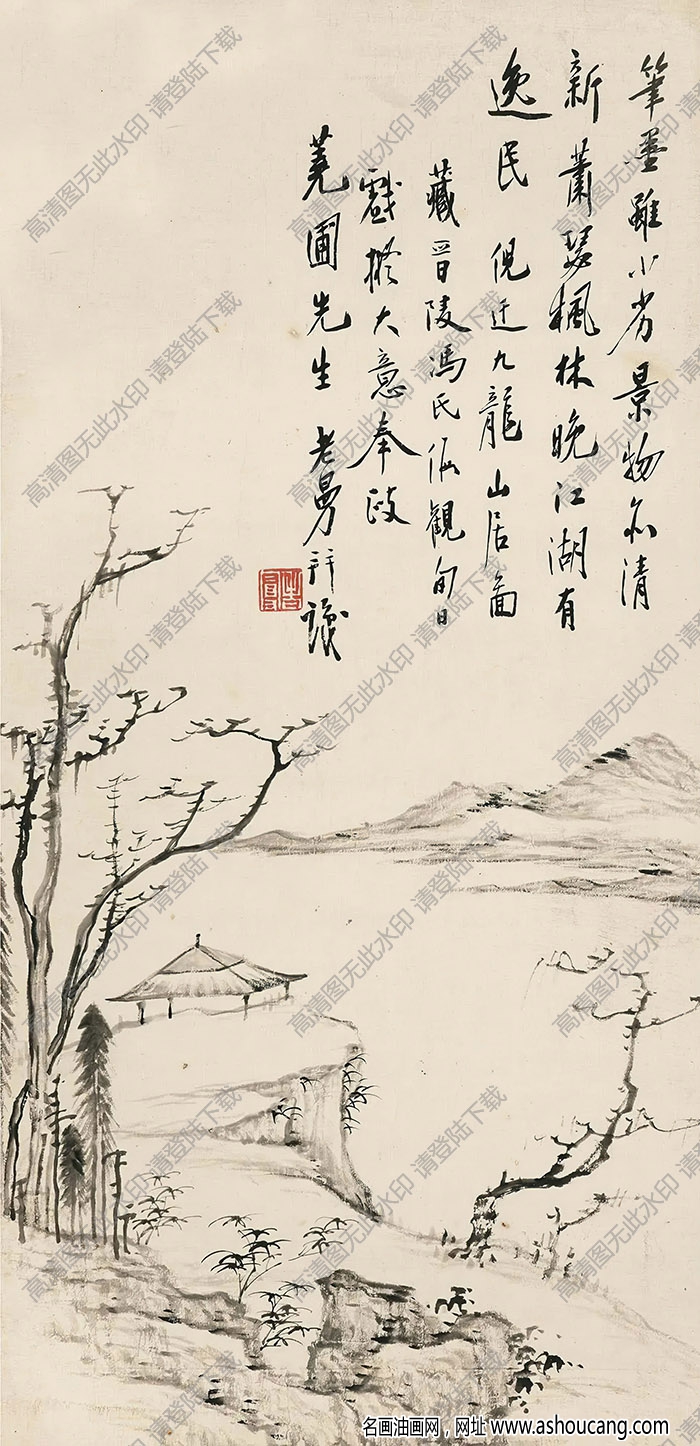 筆墨雖小劣景物亦清
新蕭瑟楓林晚江湖有
逸民 倪迂九龍山居圖
藏晉陵馮氏假觀旬日
戲撫大意奉政
蕘圃先生 老曼并識
高清图无此水印 请登陆下载
名画油画网，网址 www.ashoucang.com